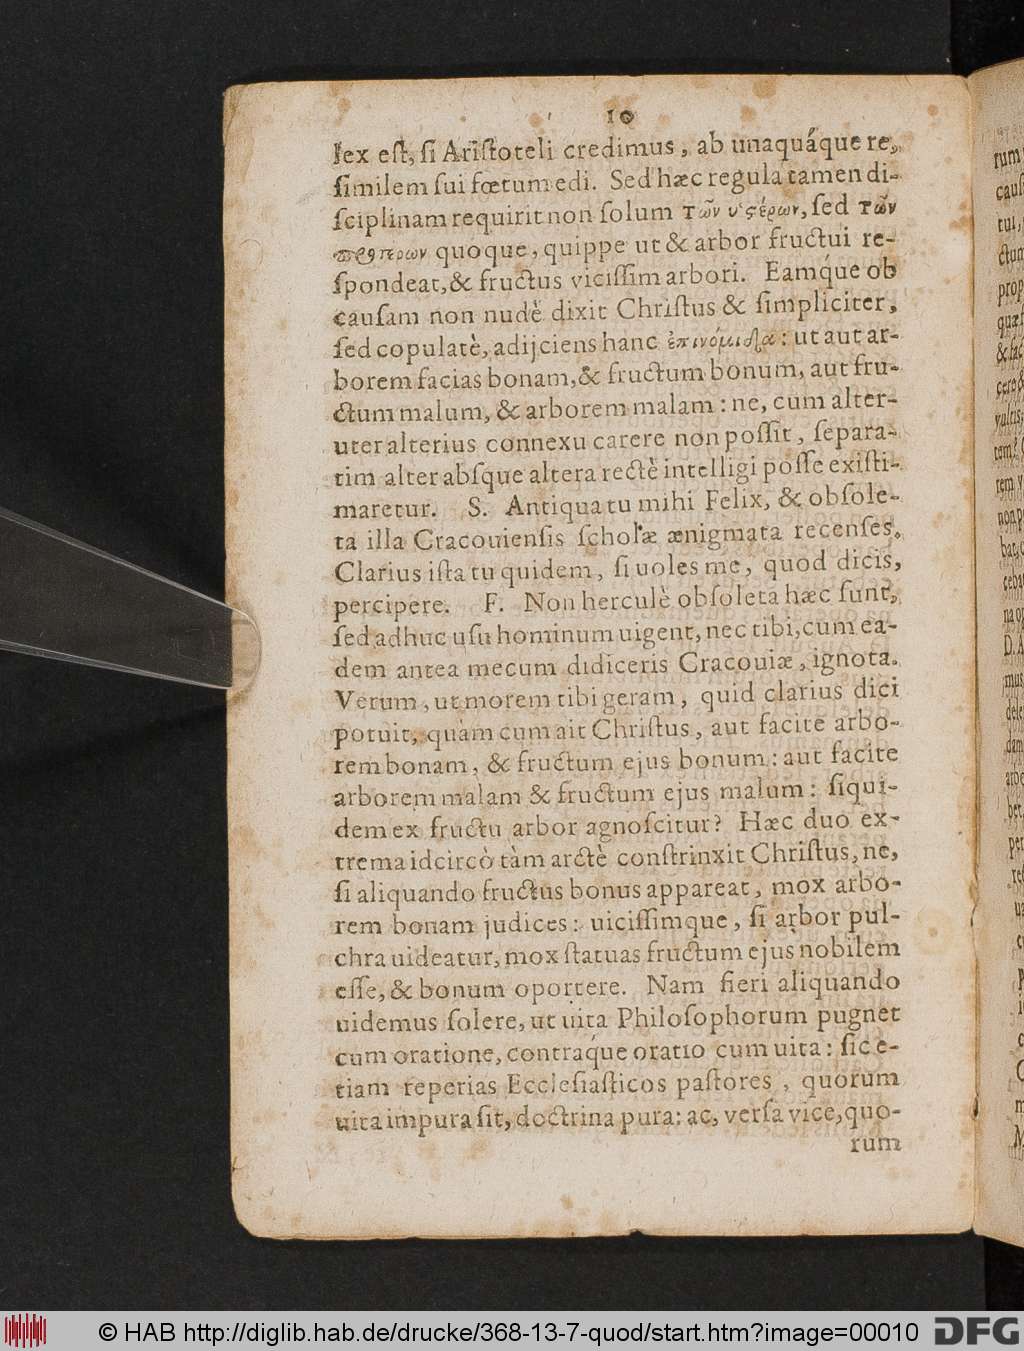 10
lex est, si Aristoteli credimus, ab unaquáque re,
similem sui fœtum edi. Sed hæc regula tamen di-
sciplinam requirit non solum τῶν ὑςέρων, sed τῶν
προτέρων quoque, quippe ut & arbor fructui re-
spondeat, & fructus vicissim arbori. Eamq́ue ob
causam non nudè dixit Christus & simpliciter,
sed copulatè, adijciens hanc ἐπινόμιδα: ut aut ar-
borem facias bonam, & fructum bonum, aut fru-
ctum malum, & arborem malam: ne, cum alter-
uter alterius connexu carere non possit, separa-
tim alter absque altera rectè intelligi posse existi-
maretur. S. Antiqua tu mihi Felix, & obsole-
ta illa Cracouiensis scholæ ænigmata recenses.
Clarius ista tu quidem, si uoles me, quod dicis,
percipere. F. Non herculè obsoleta hæc sunt,
sed adhuc usu hominum uigent, nec tibi, cum ea-
dem antea mecum didiceris Cracouiæ, ignota.
Verum, ut morem tibi geram, quid clarius dici
potuit, quàm cum ait Christus, aut facite arbo-
rem bonam, & fructum ejus bonum: aut facite
arborem malam & fructum ejus malum: siqui-
dem ex fructu arbor agnoscitur? Hæc duo ex-
trema idcircò tàm arctè constrinxit Christus, ne,
si aliquando fructus bonus appareat, mox arbo-
rem bonam judices: uicissimque, si arbor pul-
chra uideatur, mox statuas fructum ejus nobilem
esse, & bonum oportere. Nam fieri aliquando
uidemus solere, ut uita Philosophorum pugnet
cum oratione, contraq́ue oratio cum uita: sic e-
tiam reperias Ecclesiasticos pastores, quorum
uita impura sit, doctrina pura: ac, versa vice, quo-
rum
© HAB http://diglib.hab.de/drucke/368-13-7-quod/start.htm?image=00010
DFG